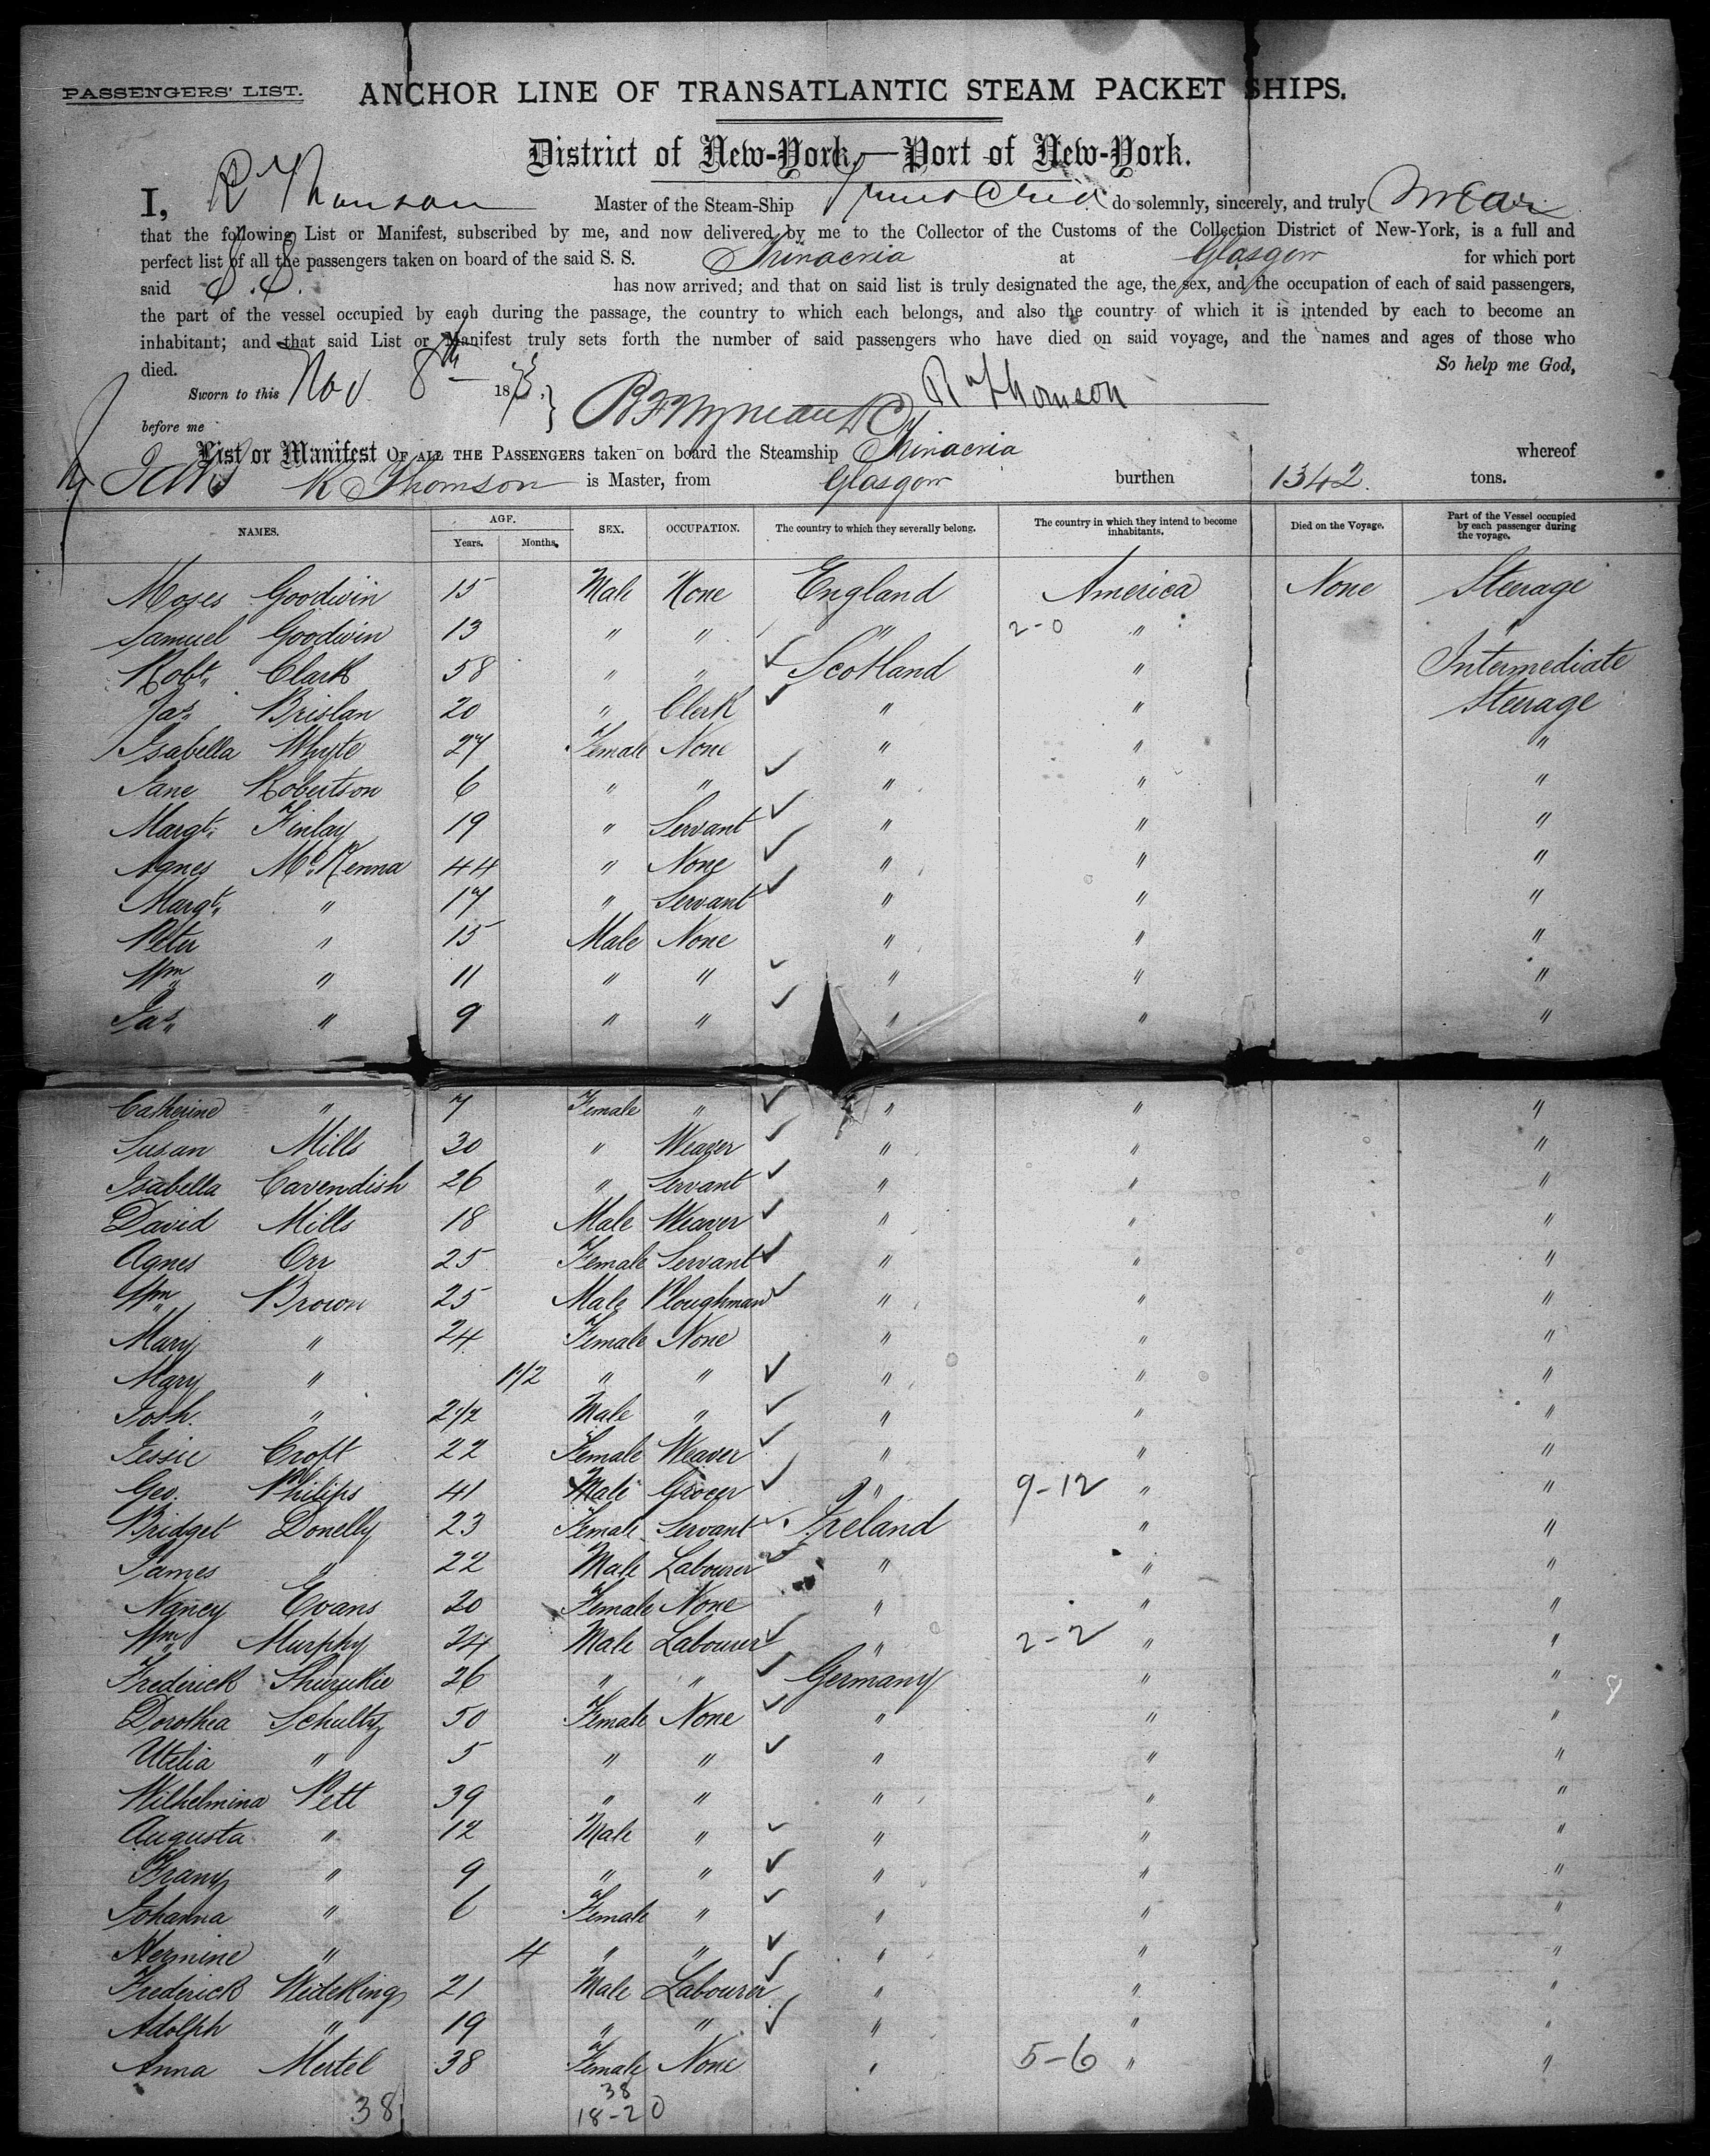 PASSENGERS' LIST. ANCHOR LINE OF TRANSATLANTIC STEAM PACKET SHIPS.
District of New-York,—Port of New-York.
I, R Thomson Master of the Steam-Ship Trinacria do solemnly, sincerely, and truly swear
that the following List or Manifest, subscribed by me, and now delivered by me to the Collector of the Customs of the Collection District of New-York, is a full and
perfect list of all the passengers taken on board of the said S. S. Trinacria at Glasgow for which port
said S.S. has now arrived; and that on said list is truly designated the age, the sex, and the occupation of each of said passengers,
the part of the vessel occupied by each during the passage, the country to which each belongs, and also the country of which it is intended by each to become an
inhabitant; and that said List or Manifest truly sets forth the number of said passengers who have died on said voyage, and the names and ages of those who
died. So help me God,
Sworn to this Nov 8th 187 R Thomson
before me
List or Manifest OF ALL THE PASSENGERS taken on board the Steamship Trinacria whereof
R Thomson is Master, from Glasgow burthen 1342 tons.
NAMES. AGE. SEX. OCCUPATION. The country to which they severally belong. The country in which they intend to become inhabitants. Died on the Voyage. Part of the Vessel occupied by each passenger during the voyage.
Years. Months.
Moses Goodwin 15 Male None England America None Steerage
Samuel Goodwin 13 " " " 2-0 " "
Robt. Clark 58 " " Scotland " Intermediate
Jas. Brislan 20 " Clerk " " Steerage
Isabella Whyte 27 Female None " " "
Jane Robertson 6 " " " " "
Margt. Finlay 19 " Servant " " "
Agnes McKenna 44 " None " " "
Margt. " 17 " Servant " " "
Peter " 15 Male None " " "
Wm " 11 " " " " "
Jas. " 9 " " " " "
Catherine " 7 Female " " " "
Susan Mills 30 " Weaver " " "
Isabella Cavendish 26 " Servant " " "
David Mills 18 Male Weaver " " "
Agnes Orr 25 Female Servant " " "
Wm Brown 25 Male Ploughman " " "
Mary " 24 Female None " " "
Mary " 1/2 " " " " "
Josh. " 2 1/2 Male " " " "
Jessie Croft 22 Female Weaver " " "
Geo. Philips 41 Male Grocer " 9-12 " "
Bridget Donelly 23 Female Servant Ireland " "
James " 22 Male Labourer " " "
Nancy Evans 20 Female None " " "
Wm Murphy 24 Male Labourer " 2-2 " "
Frederick 26 " " Germany " "
Dorothea Schultz 50 Female None " " "
Utilia " 5 " " " " "
Wilhelmina Pett 39 " " " " "
Augusta " 12 Male " " " "
Franz " 9 " " " " "
Johanna " 6 Female " " " "
Hermine " 4 " " " " "
Frederick Wideking 21 Male Labourer " " "
Adolph " 19 " " " " "
Anna Mertel 38 Female None " 5-6 " "
38 38
18-20